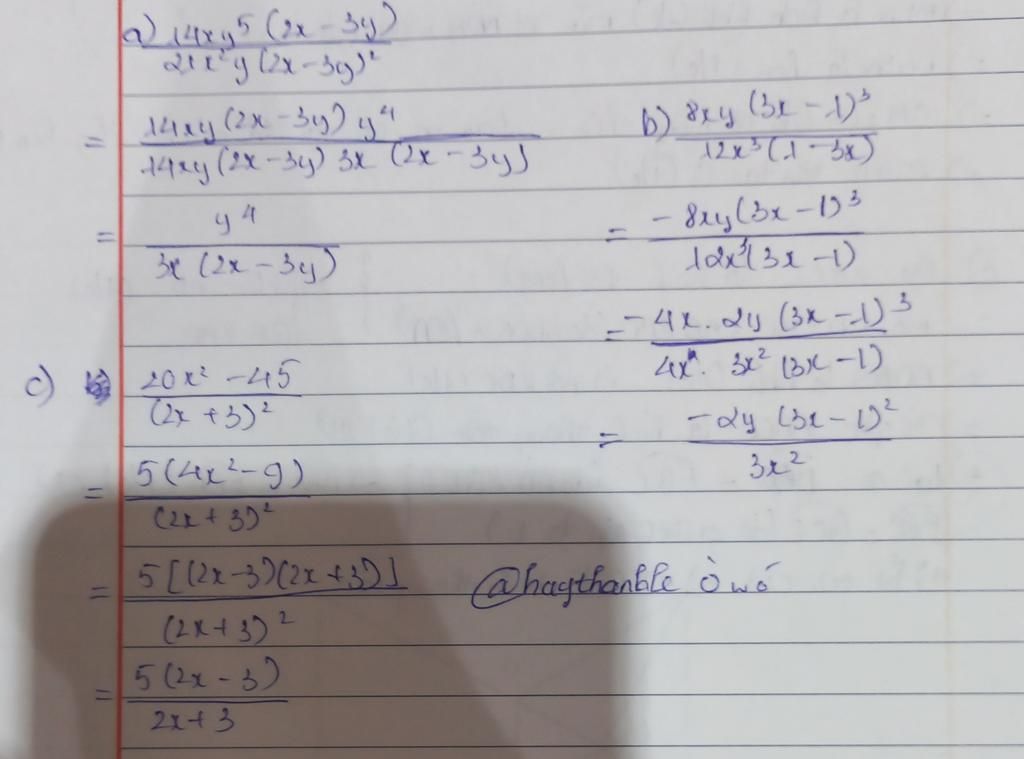 a) 14xy⁵(2x - 3y) / 21x²y(2x - 3y)²
= 14xy(2x - 3y) y⁴ / 14xy(2x - 3y) 3x (2x - 3y)
= y⁴ / 3x(2x - 3y)
b) 8xy(3x - 1)³ / 12x³(1 - 3x)
= -8xy(3x - 1)³ / 12x³(3x - 1)
= -4x . 2y (3x - 1)³ / 4x . 3x² (3x - 1)
= -2y (3x - 1)² / 3x²
c) 20x² - 45 / (2x + 3)²
= 5(4x² - 9) / (2x + 3)²
= 5[(2x - 3)(2x + 3)] / (2x + 3)²
= 5(2x - 3) / 2x + 3